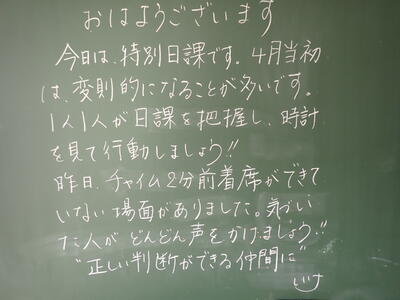 おはようございます
今日は、特別日課です。4月当初
は、変則的になることが多いです。
1人1人が日課を把握し、時計
を見て行動しましょう!!
昨日、チャイム2分前着席ができて
いない場面がありました。気づい
た人がどんどん声をかけましょう!!
"正しい判断ができる仲間に"